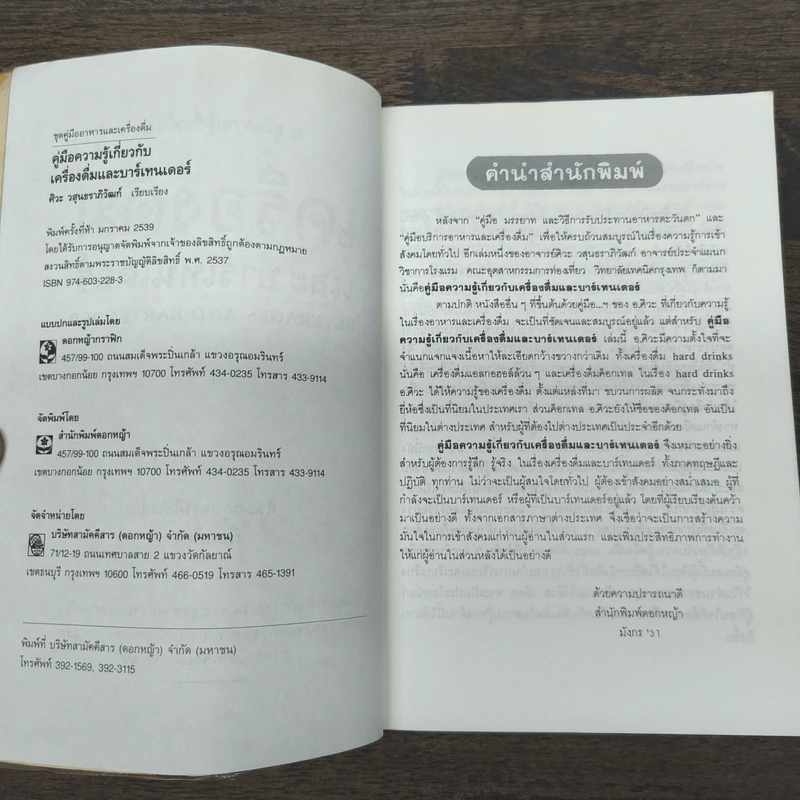 ชุดคู่มืออาหารและเครื่องดื่ม
คู่มือความรู้เกี่ยวกับ
เครื่องดื่มและบาร์เทนเดอร์
ศิวะ วสุนธราภิวัฒก์ เรียบเรียง
พิมพ์ครั้งที่ห้า มกราคม 2539
โดยได้รับการอนุญาตจัดพิมพ์จากเจ้าของลิขสิทธิ์ถูกต้องตามกฎหมาย
สงวนสิทธิ์ตามพระราชบัญญัติลิขสิทธิ์ พ.ศ. 2537
ISBN 974-603-228-3
แบบปกและรูปเล่มโดย
ดอกหญ้ากราฟิก
457/99-100 ถนนสมเด็จพระปิ่นเกล้า แขวงอรุณอมรินทร์
เขตบางกอกน้อย กรุงเทพฯ 10700 โทรศัพท์ 434-0235 โทรสาร 433-9114
จัดพิมพ์โดย
สำนักพิมพ์ดอกหญ้า
457/99-100 ถนนสมเด็จพระปิ่นเกล้า แขวงอรุณอมรินทร์
เขตบางกอกน้อย กรุงเทพฯ 10700 โทรศัพท์ 434-0235 โทรสาร 433-9114
จัดจำหน่ายโดย
บริษัทสามัคคีสาร (ดอกหญ้า) จำกัด (มหาชน)
71/12-19 ถนนเทศบาลสาย 2 แขวงวัดกัลยาณ์
เขตธนบุรี กรุงเทพฯ 10600 โทรศัพท์ 466-0519 โทรสาร 465-1391
พิมพ์ที่ บริษัทสามัคคีสาร (ดอกหญ้า) จำกัด (มหาชน)
โทรศัพท์ 392-1569, 392-3115
คำนำสำนักพิมพ์
หลังจาก "คู่มือ มรรยาท และวิธีการรับประทานอาหารตะวันตก" และ
"คู่มือบริการอาหารและเครื่องดื่ม" เพื่อให้ครบถ้วนสมบูรณ์ในเรื่องความรู้การเข้า
สังคมโดยทั่วไป อีกเล่มหนึ่งของอาจารย์ศิวะ วสุนธราภิวัฒก์ อาจารย์ประจำแผนก
วิชาการโรงแรม คณะอุตสาหกรรมการท่องเที่ยว วิทยาลัยเทคนิคกรุงเทพ ก็ตามมา
นั่นคือคู่มือความรู้เกี่ยวกับเครื่องดื่มและบาร์เทนเดอร์
ตามปกติ หนังสืออื่น ๆ ที่ขึ้นต้นด้วยคู่มือ...ฯ ของ อ.ศิวะ ที่เกี่ยวกับความรู้
ในเรื่องอาหารและเครื่องดื่ม จะเป็นที่ชัดเจนและสมบูรณ์อยู่แล้ว แต่สำหรับ คู่มือ
ความรู้เกี่ยวกับเครื่องดื่มและบาร์เทนเดอร์ เล่มนี้ อ.ศิวะมีความตั้งใจที่จะ
จำแนกแจกแจงเนื้อหาให้ละเอียดกว้างขวางกว่าเดิม ทั้งเครื่องดื่ม hard drinks
นั่นคือ เครื่องดื่มแอลกอฮอล์ล้วน ๆ และเครื่องดื่มค็อกเทล ในเรื่อง hard drinks
อ.ศิวะ ได้ให้ความรู้ของเครื่องดื่ม ตั้งแต่แหล่งที่มา ขบวนการผลิต จนกระทั่งมาถึง
ยี่ห้อซึ่งเป็นที่นิยมในประเทศเรา ส่วนค็อกเทล อ.ศิวะยังให้ชื่อของค็อกเทล อันเป็น
ที่นิยมในต่างประเทศ สำหรับผู้ที่ต้องไปต่างประเทศเป็นประจำอีกด้วย
คู่มือความรู้เกี่ยวกับเครื่องดื่มและบาร์เทนเดอร์ จึงเหมาะอย่างยิ่ง
สำหรับผู้ต้องการรู้ลึก รู้จริง ในเรื่องเครื่องดื่มและบาร์เทนเดอร์ ทั้งภาคทฤษฎีและ
ปฏิบัติ ทุกท่าน ไม่ว่าจะเป็นผู้สนใจโดยทั่วไป ผู้ต้องเข้าสังคมอย่างสม่ำเสมอ ผู้ที่
กำลังจะเป็นบาร์เทนเดอร์ หรือผู้ที่เป็นบาร์เทนเดอร์อยู่แล้ว โดยที่ผู้เรียบเรียงค้นคว้า
มาเป็นอย่างดี ทั้งจากเอกสารภาษาต่างประเทศ จึงเชื่อว่าจะเป็นการสร้างความ
มั่นใจในการเข้าสังคมแก่ท่านผู้อ่านในส่วนแรก และเพิ่มประสิทธิภาพการทำงาน
ให้แก่ผู้อ่านในส่วนหลังได้เป็นอย่างดี
ด้วยความปรารถนาดี
สำนักพิมพ์ดอกหญ้า
มังกร '31